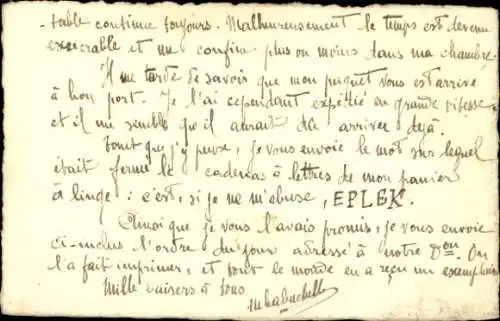 -table continue toujours. Malheureusement le temps est devenu
exécrable et me confine plus ou moins dans ma chambre.
Il me tarde de savoir que mon paquet vous est arrivé
à bon port. Je l'ai cependant expédié en grande vitesse
et il me semble qu'il aurait dû arriver déjà.
Tant que j'y pense, je vous envoie le mot sur lequel
était fermé le cadenas à lettres de mon panier
à linge : c'est, si je ne m'abuse, EPLBK.
Ainsi que je vous l'avais promis, je vous envoie
ci-inclus l'ordre du jour adressé à notre Don. On
l'a fait imprimer, et tout le monde en a reçu un exemplaire
Mille baisers à tous